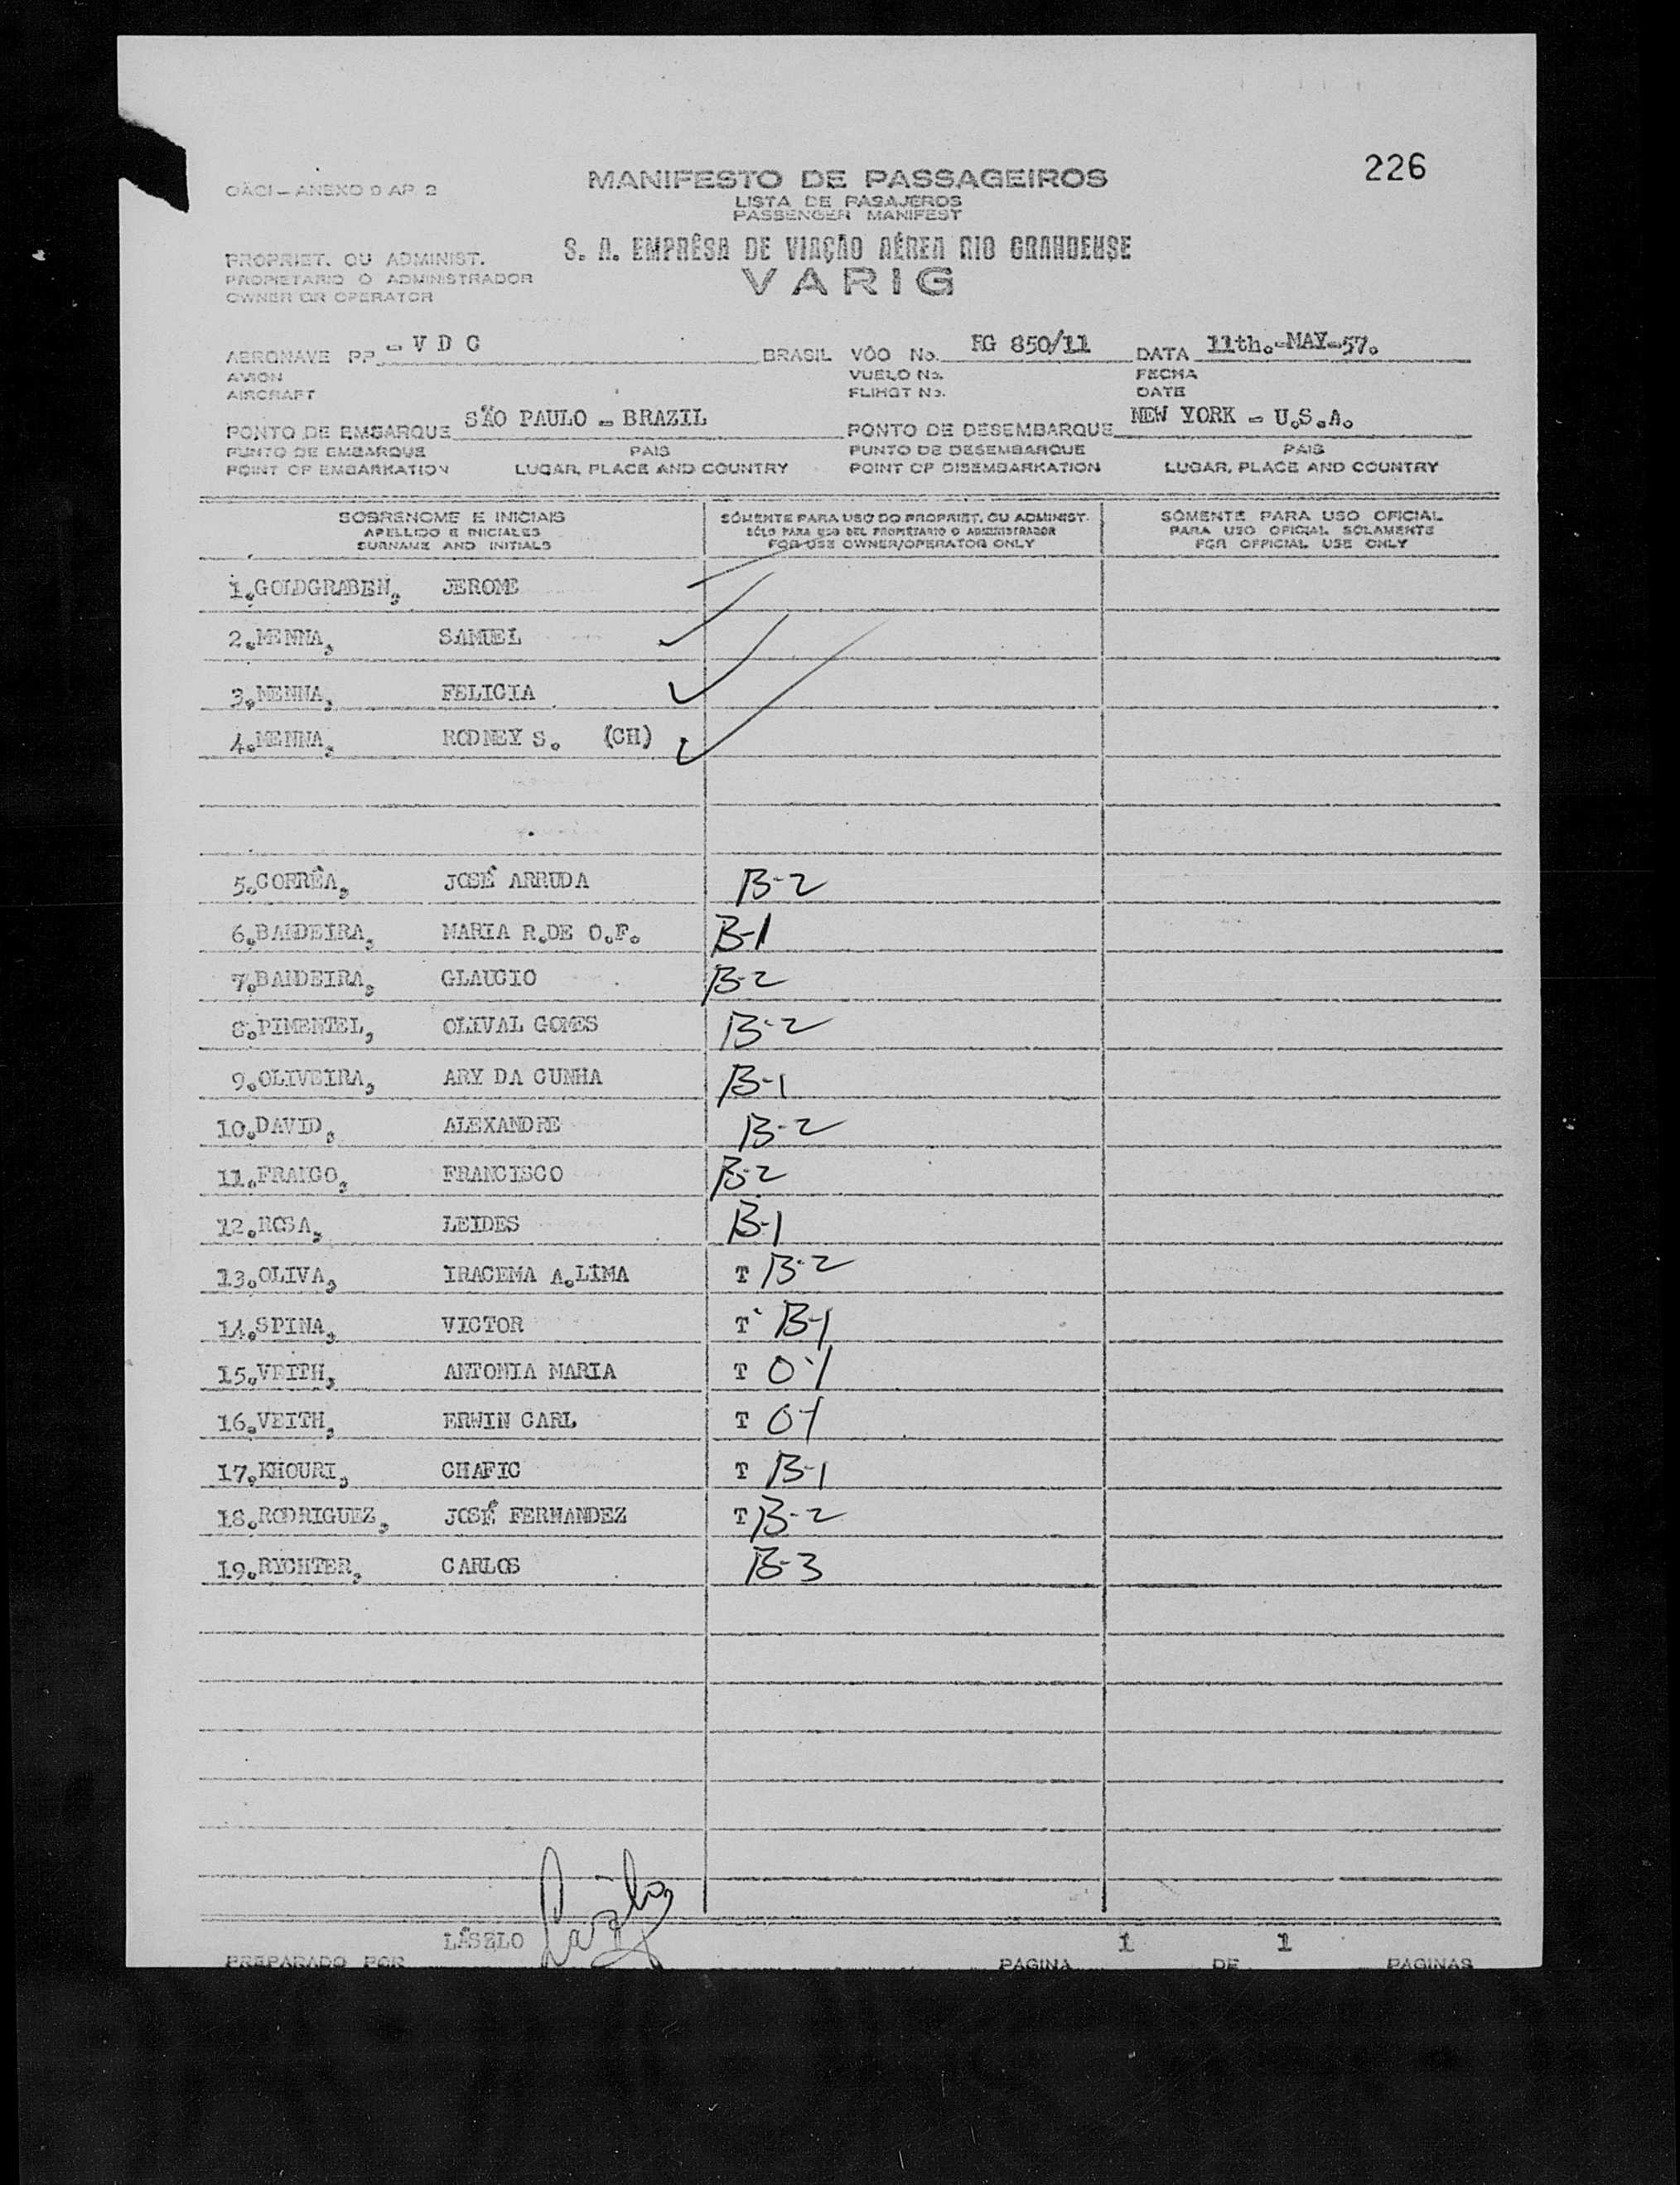 226
OÁCI — ANEXO 9 AP. 2
MANIFESTO DE PASSAGEIROS
LISTA DE PASAJEROS
PASSENGER MANIFEST
S. A. EMPRÊSA DE VIAÇÃO AÉREA RIO GRANDENSE
VARIG
PROPRIET. OU ADMINIST.
PROPIETARIO O ADMINISTRADOR
OWNER OR OPERATOR
AERONAVE PP - V D C BRASIL VÔO No. RG 850/11 DATA 11th.-MAY-57.
AVION VUELO No. FECHA
AIRCRAFT FLIHGT No. DATE
PONTO DE EMBARQUE SÃO PAULO - BRAZIL PONTO DE DESEMBARQUE NEW YORK - U.S.A.
PUNTO DE EMBARQUE PAIS PUNTO DE DESEMBARQUE PAIS
POINT OF EMBARKATION LUGAR, PLACE AND COUNTRY POINT OF DISEMBARKATION LUGAR, PLACE AND COUNTRY
SOBRENOME E INICIAIS SÓMENTE PARA USO DO PROPRIET. OU ADMINIST. SÓMENTE PARA USO OFICIAL
APELLIDO E INICIALES SÓLO PARA USO DEL PROPIETARIO O ADMINISTRADOR PARA USO OFICIAL SOLAMENTE
SURNAME AND INITIALS FOR USE OWNER/OPERATOR ONLY FOR OFFICIAL USE ONLY
1.GOLDGRABEN, JEROME
2.MENNA, SAMUEL
3.MENNA, FELICIA
4.MENNA, RODNEY S. (CH)
5.CORRÊA, JOSÉ ARRUDA B-2
6.BANDEIRA, MARIA R.DE O.F. B-1
7.BANDEIRA, GLAUCIO B-2
8.PIMENTEL, OLIVAL GOMES B-2
9.OLIVEIRA, ARY DA CUNHA B-1
10.DAVID, ALEXANDRE B-2
11.FRANCO, FRANCISCO B-2
12.ROSA, LEIDES B-1
13.OLIVA, IRACEMA A.LIMA T B-2
14.SPINA, VICTOR T B-1
15.VEITH, ANTONIA MARIA T O-1
16.VEITH, ERWIN CARL T O-1
17.KHOURI, CHAFIC T B-1
18.RODRIGUEZ, JOSÉ FERNANDEZ T B-2
19.RYCHTER, CARLOS B-3
LÁSZLO Lászlo
PREPARADO POR PAGINA 1 DE 1 PAGINAS